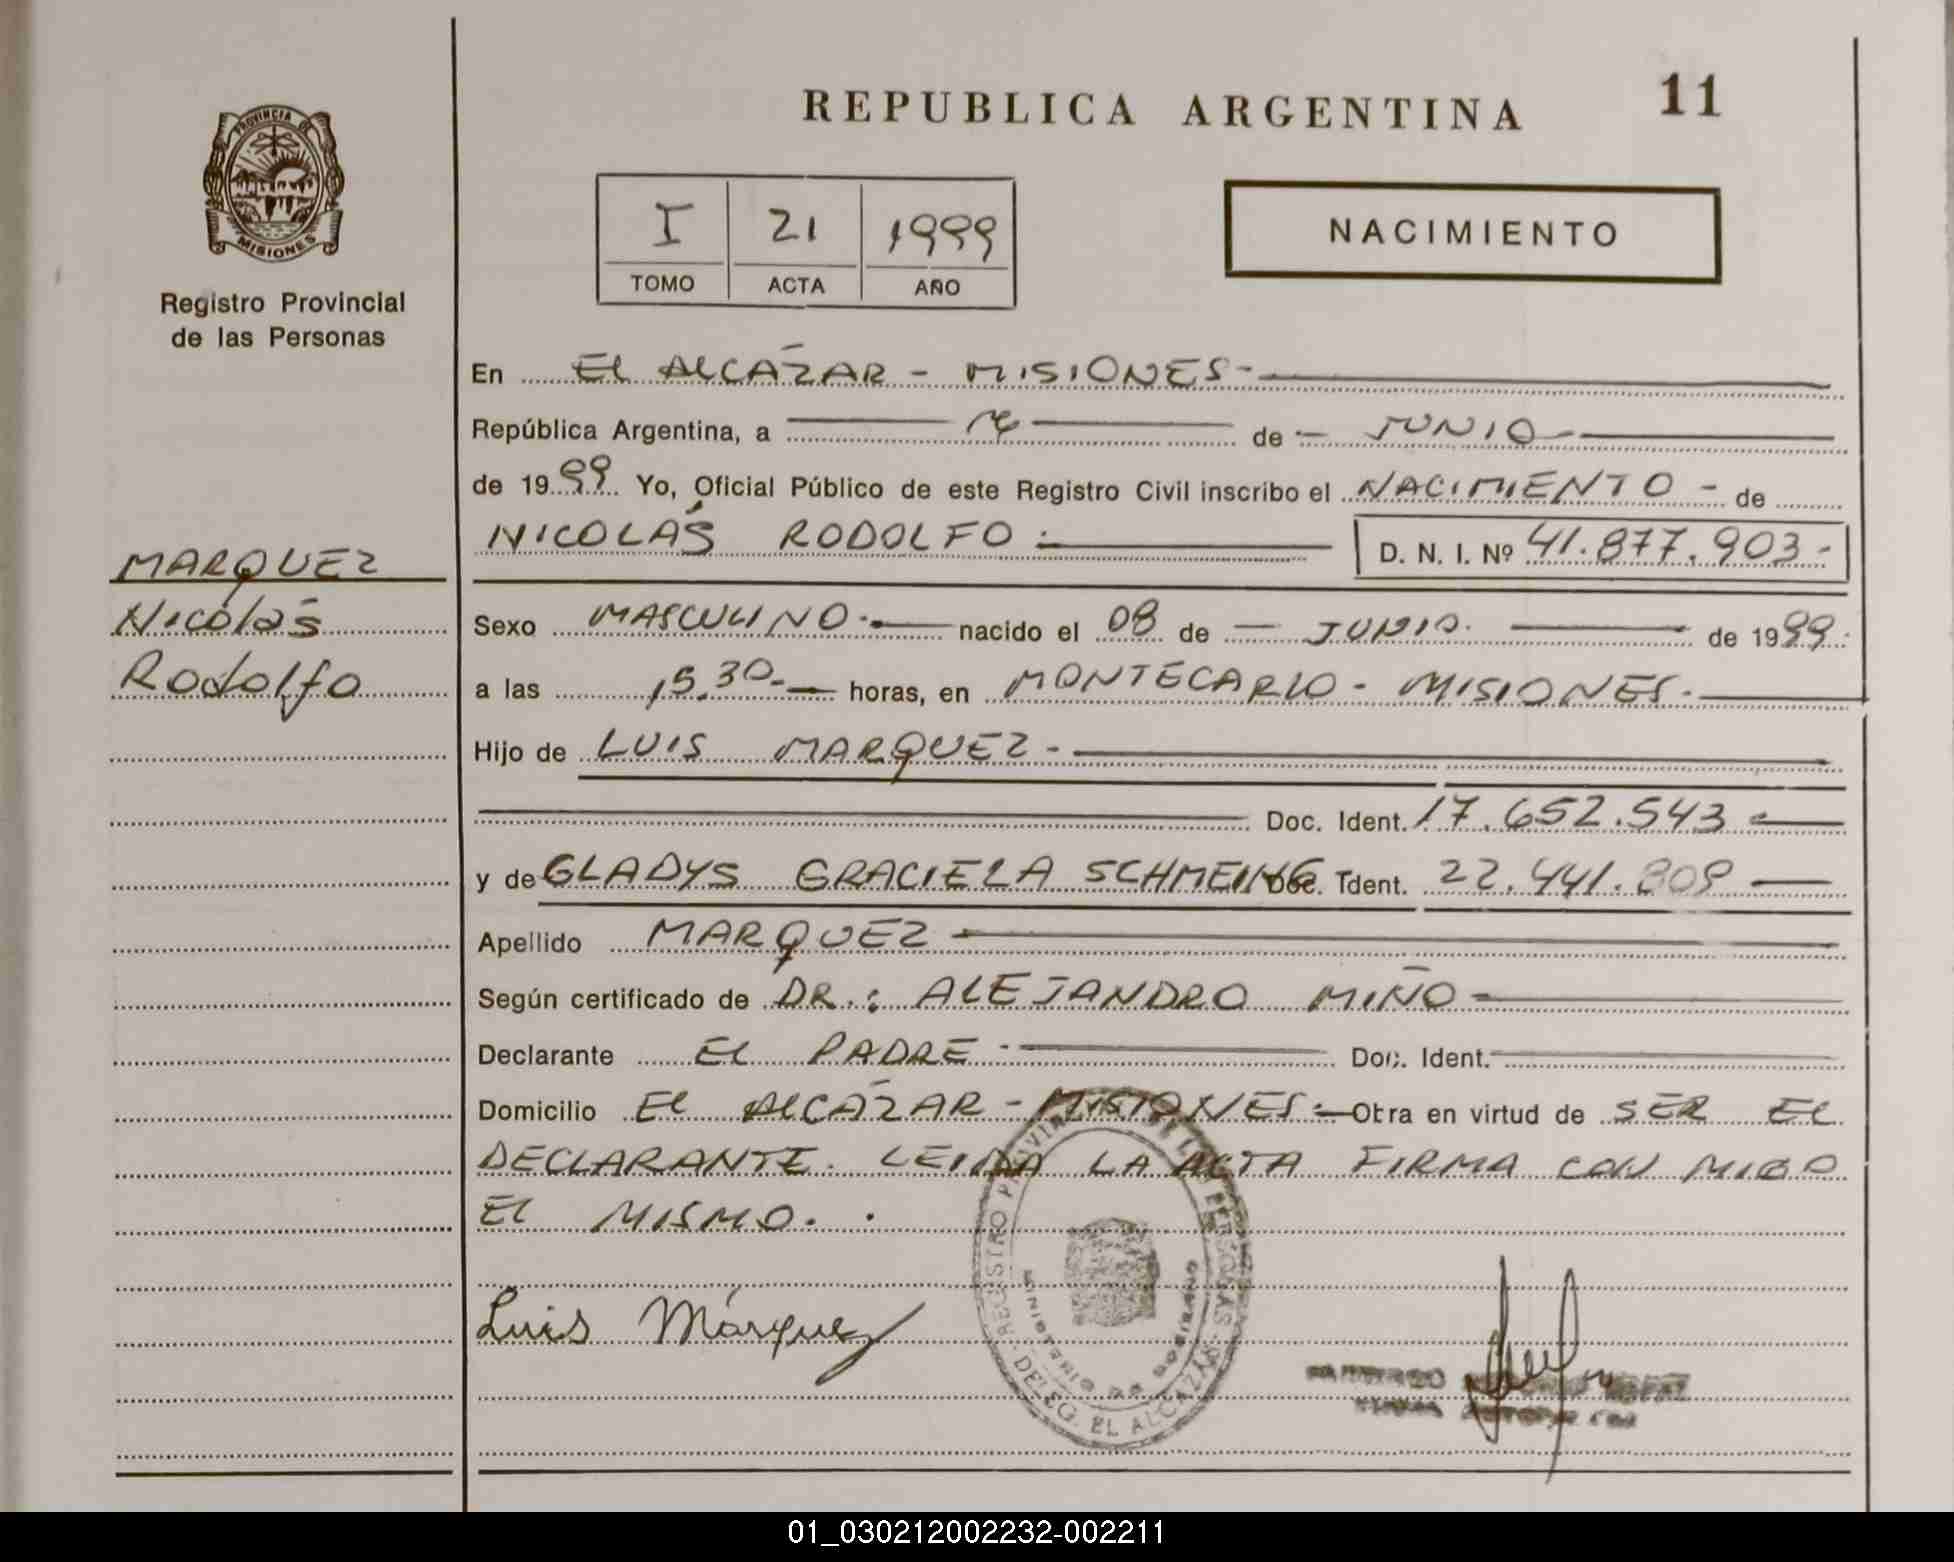 REPUBLICA ARGENTINA
11
PROVINCIA DE
MISIONES
Registro Provincial
de las Personas
I 21 1999
TOMO ACTA AÑO
NACIMIENTO
En EL ALCÁZAR - MISIONES-
República Argentina, a de - JUNIO -
de 1999 Yo, Oficial Público de este Registro Civil inscribo el NACIMIENTO - de
NICOLÁS RODOLFO
D. N. I. Nº 41.877.903-
MARQUEZ
Nicolás
Rodolfo
Sexo MASCULINO.- nacido el 08 de - JUNIO. de 1999.
a las 15.30.- horas, en MONTECARLO - MISIONES.
Hijo de LUIS MARQUEZ -
Doc. Ident. 17.652.543
y de GLADYS GRACIELA SCHMEING Doc. Ident. 22.441.809
Apellido MARQUEZ
Según certificado de DR.: ALEJANDRO MIÑO
Declarante EL PADRE - Doc. Ident.
Domicilio EL ALCÁZAR - MISIONES.- Obra en virtud de SER EL
DECLARANTE. LEIDA LA ACTA FIRMA CON MIGO
EL MISMO. .
Luis Márquez
REGISTRO PROVINCIAL DE LAS PERSONAS
MINISTERIO DE GOBIERNO
DELEG. EL ALCAZAR
01_030212002232-002211